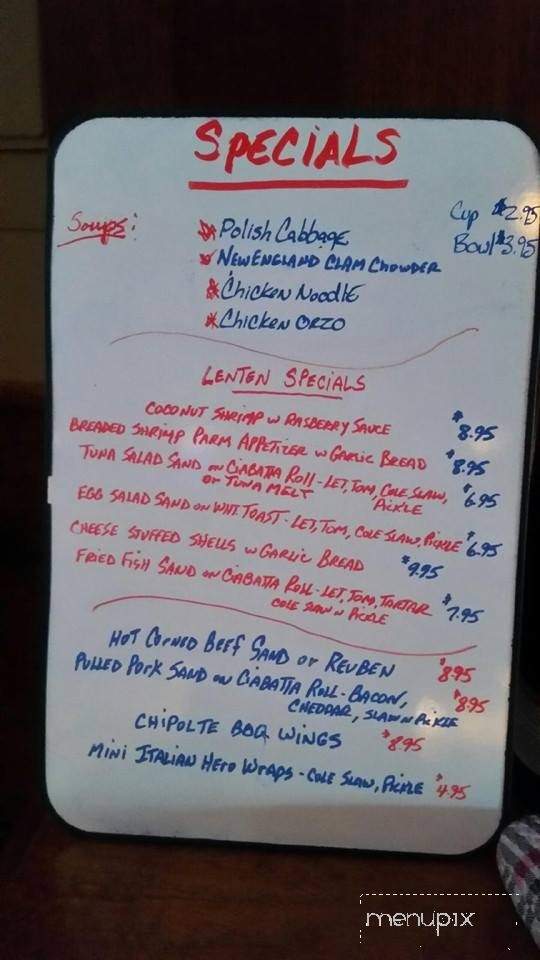 SPECIALS
Soups:
Cup $2.95
Bowl $3.95
* Polish Cabbage
* NEW ENGLAND CLAM CHOWDER
* Chicken Noodle
* Chicken ORZO
LENTEN SPECIALS
COCONUT SHRIMP W RASBERRY SAUCE $8.95
BREADED SHRIMP PARM APPETIZER W GARLIC BREAD $8.95
TUNA SALAD SAND ON CIABATTA ROLL - LET, TOM, COLE SLAW, $6.95
OR TUNA MELT PICKLE
EGG SALAD SAND ON WHT TOAST - LET, TOM, COLE SLAW, PICKLE $6.95
CHEESE STUFFED SHELLS W GARLIC BREAD $9.95
FRIED FISH SAND ON CIABATTA ROLL - LET, TOM, TARTAR $7.95
COLE SLAW N PICKLE
HOT CORNED BEEF SAND OR REUBEN $8.95
PULLED PORK SAND ON CIABATTA ROLL - BACON, $8.95
CHEDDAR, SLAW N PICKLE
CHIPOLTE BBQ WINGS $8.95
MINI ITALIAN HERO WRAPS - COLE SLAW, PICKLE $4.95
menupix